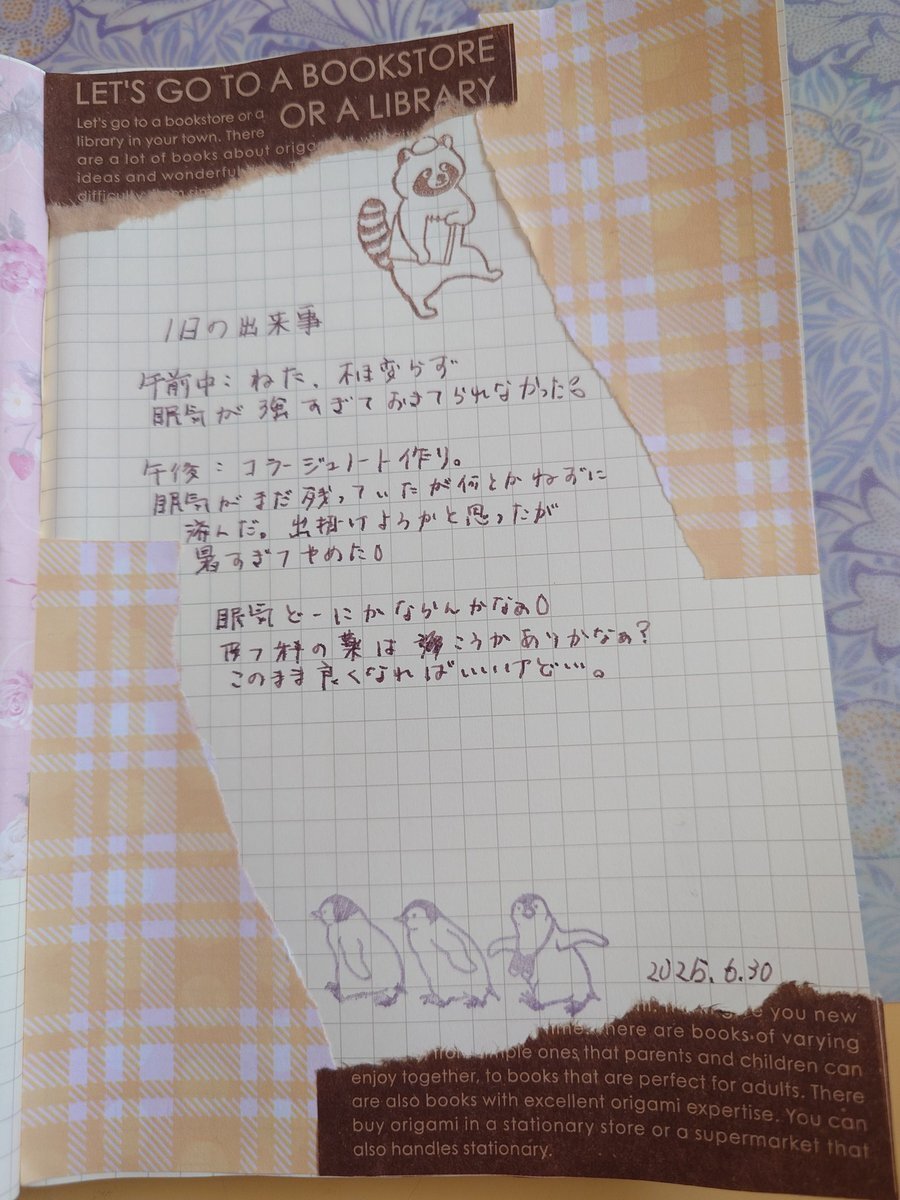 LET'S GO TO A BOOKSTORE
OR A LIBRARY
Let's go to a bookstore or a
library in your town. There
are a lot of books about origa
ideas and wonderful
difficult
1日の出来事
午前中：ねた、相変らず
眠気が強すぎておきてられなかった。
午後：コラージュノート作り。
眠気がまだ残っていたが何とかねずに
済んだ。出掛けようかと思ったが
暑すぎてやめた。
眠気どーにかならんかなぁ。
の薬はこうかありかなぁ？
このまま良くなればいいけどぃぃ。
2025.6.30
you new
here are books of varying
ple ones that parents and children can
enjoy together, to books that are perfect for adults. There
are also books with excellent origami expertise. You can
buy origami in a stationary store or a supermarket that
also handles stationary.